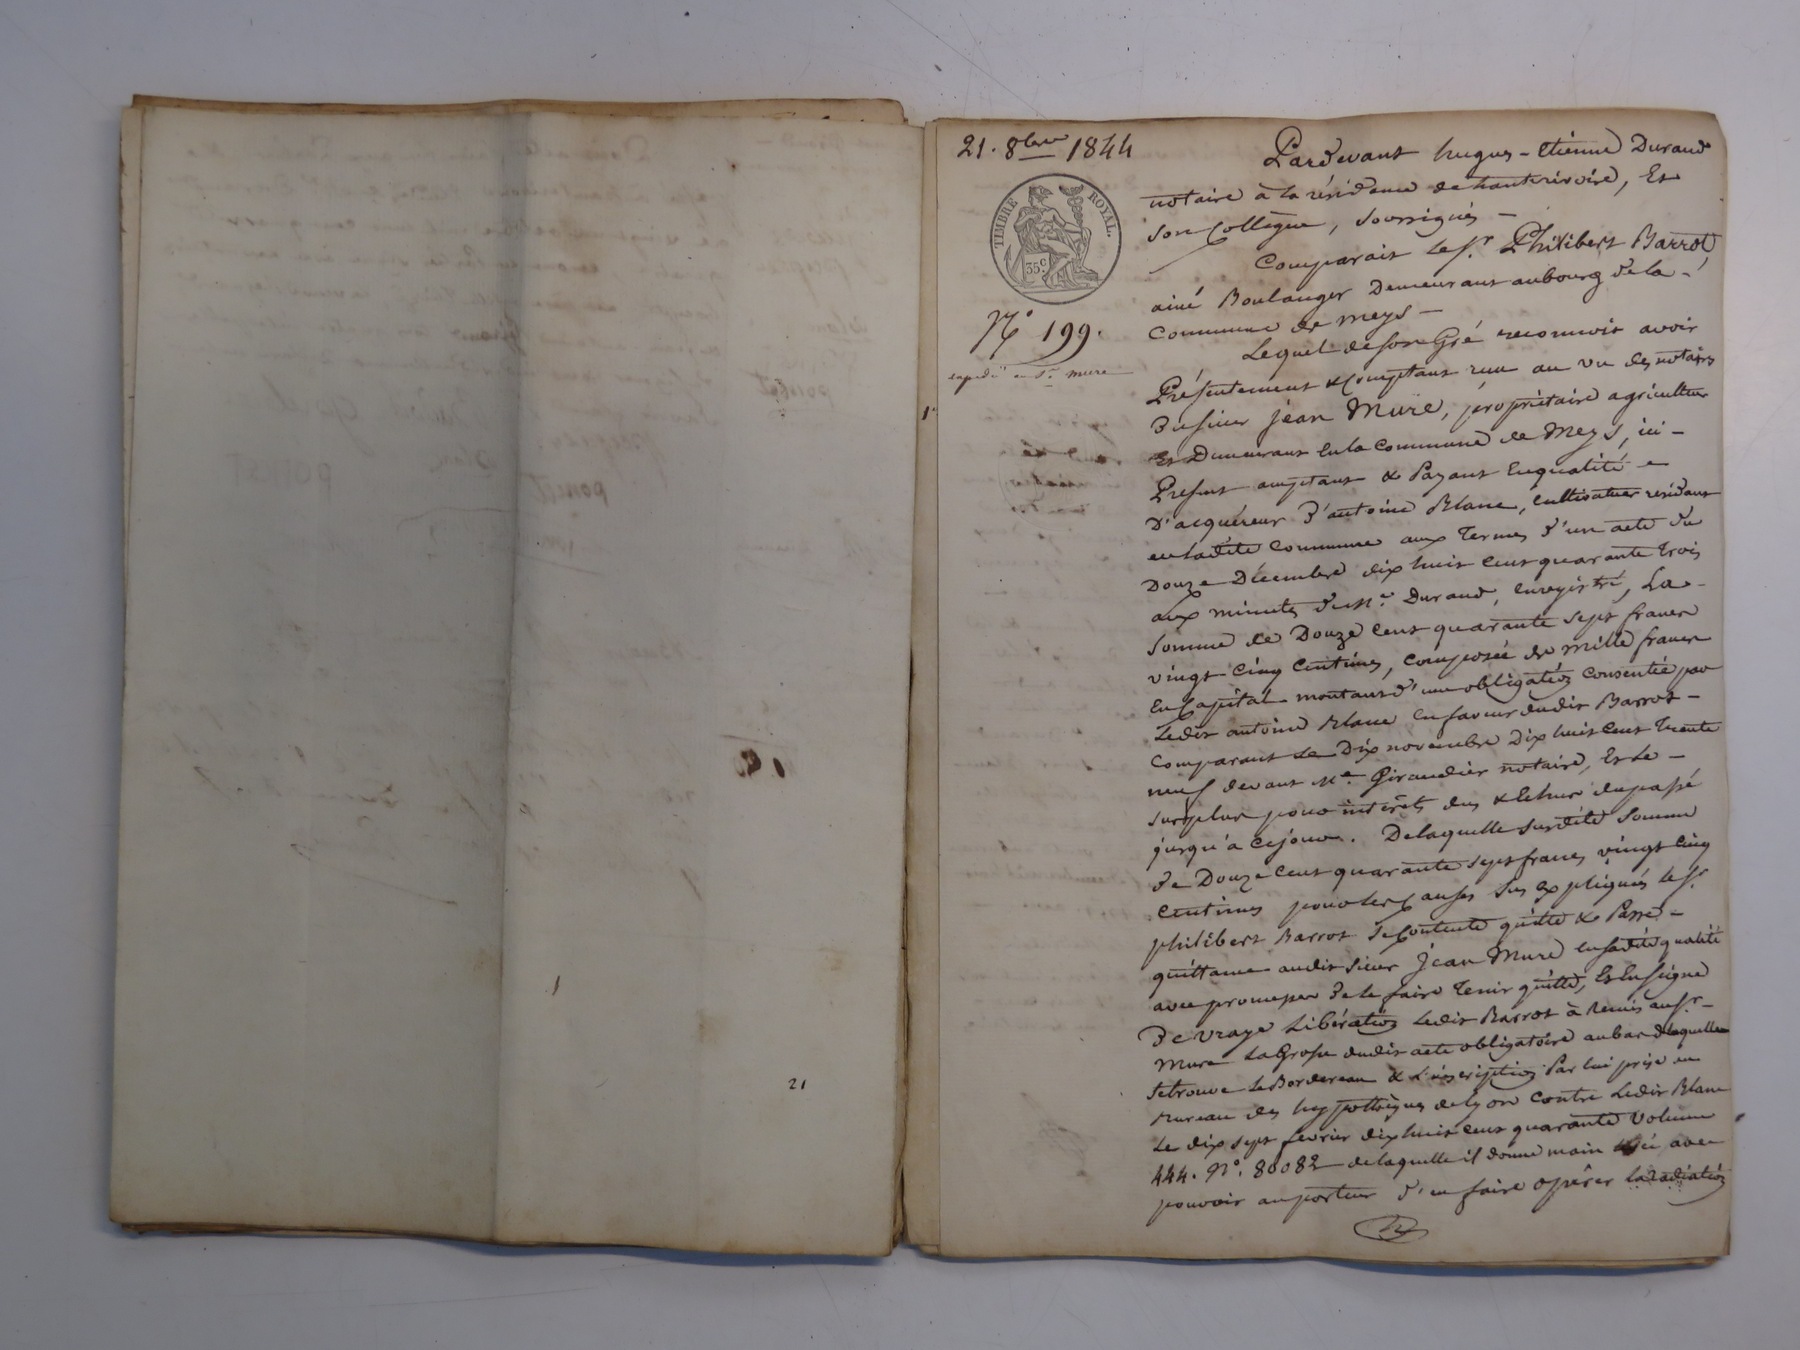 21. 8bre 1844
TIMBRE ROYAL.
35 c
N° 199.
expedié au Sr. mure
Pardevant hugues-Etienne Durand
notaire à la résidence de hauterivoire, Et
son Collègue, soussignés -
Comparait le Sr. Philibert Barrot
ainé Boulanger Demeurant au bourg de la -
Commune de meys -
Lequel de son Gré reconnoit avoir
Présentement & Comptant reçu au vu des notaires
Du sieur jean Mure, propriétaire agriculteur
Et Demeurant En la Commune de Meys, ici -
Present comptant & Payant En qualité -
D'acquéreur D'antoine Blanc, Cultivateur résidant
en ladite Commune aux Termes d'un acte du
Douze Décembre dix huit Cent quarante Trois
aux minutes du Me. Durand, Enregistré, La -
Somme de Douze Cent quarante sept francs
vingt-Cinq Centimes, Composée de mille francs
En Capital montant d'une obligation Consentie par
Ledit antoine Blanc En faveur dudit Barrot -
Comparant Le Dix novembre Dix huit Cent Trente
neuf devant Me. Giraudier notaire, Et le -
surplus pour intérêts dus & Echus du passé
jusqu'à Ce jour. De laquelle susdite Somme
de Douze Cent quarante sept francs vingt Cinq
Centimes pour les Causes Sus Expliquées le Sr.
philibert Barrot se Contente quitte & Passe -
quittance audit sieur jean Mure En sadite qualité
avec promesse De le faire Tenir quitte, Et En signe
De vraye Libération Ledit Barrot à Remis au Sr. -
Mure La Grosse dudit acte obligatoire au bas de laquelle
se trouve le Bordereau & L'inscription Par lui prise au
Bureau des hyppothèques de lyon Contre Ledit Blanc
Le dix sept fevrier dix huit Cent quarante Volume
444. N°. 80082 de laquelle il donne main levée avec
pouvoir au porteur d'en faire opérer la radiation
21